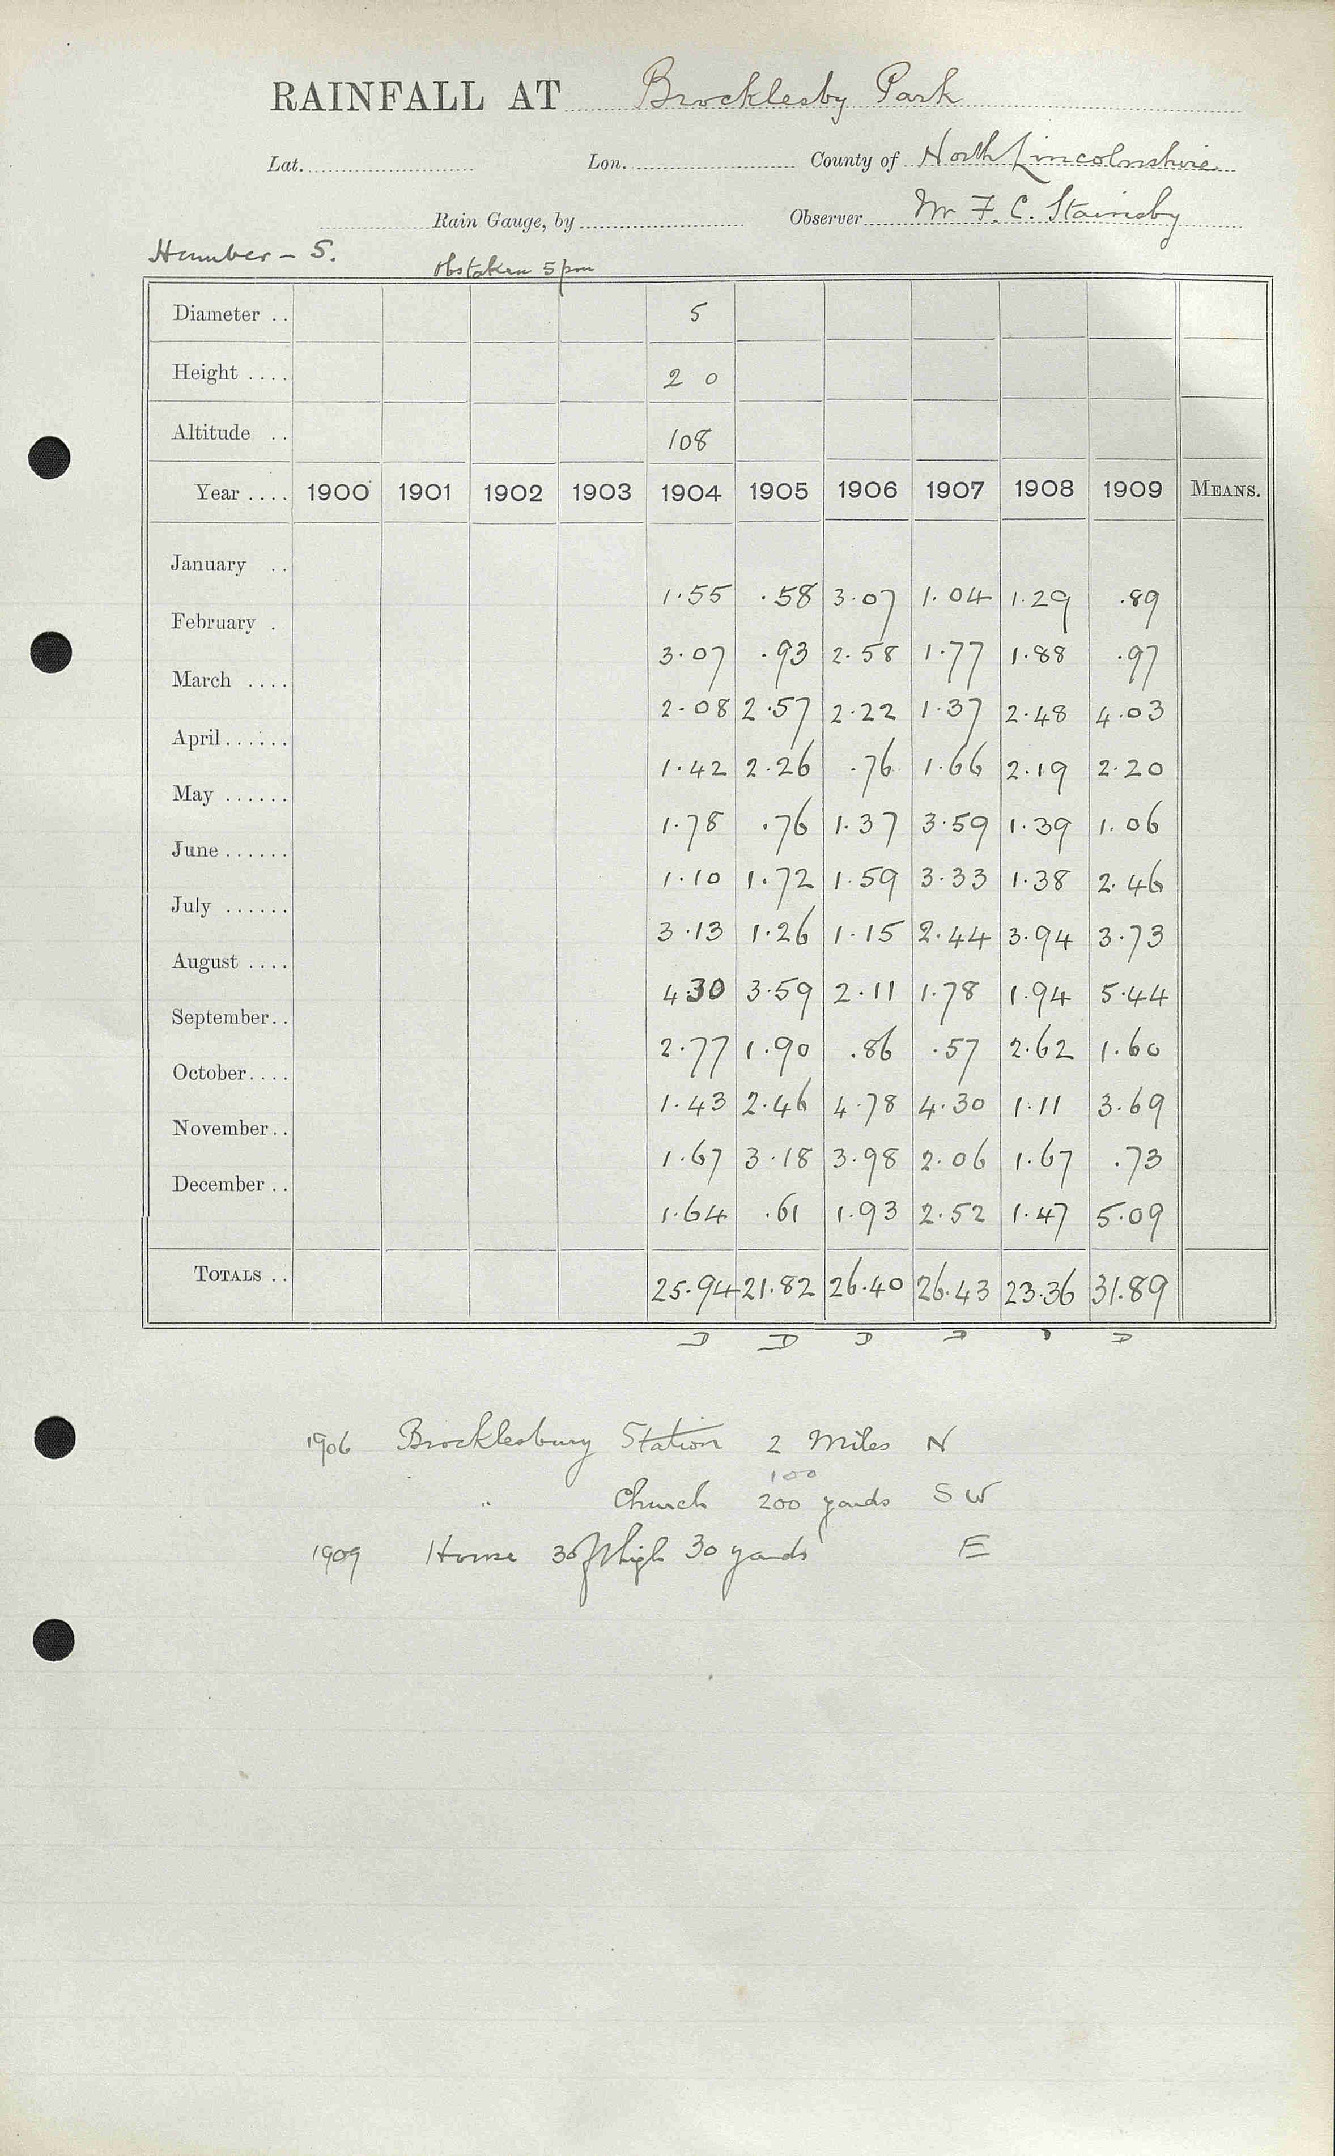 RAINFALL AT Brocklesby Park
Lat. Lon. County of North Lincolnshire
Rain Gauge, by Observer Mr F. C. Stainsby
Humber - S. Obs taken 5 pm
Diameter .. 5
Height .... 2 0
Altitude .. 108
Year .... 1900 1901 1902 1903 1904 1905 1906 1907 1908 1909 MEANS.
January .. 1.55 .58 3.07 1.04 1.29 .89
February . 3.07 .93 2.58 1.77 1.88 .97
March .... 2.08 2.57 2.22 1.37 2.48 4.03
April...... 1.42 2.26 .76 1.66 2.19 2.20
May ...... 1.78 .76 1.37 3.59 1.39 1.06
June ...... 1.10 1.72 1.59 3.33 1.38 2.46
July ...... 3.13 1.26 1.15 2.44 3.94 3.73
August .... 4.30 3.59 2.11 1.78 1.94 5.44
September.. 2.77 1.90 .86 .57 2.62 1.60
October.... 1.43 2.46 4.78 4.30 1.11 3.69
November.. 1.67 3.18 3.98 2.06 1.67 .73
December .. 1.64 .61 1.93 2.52 1.47 5.09
TOTALS .. 25.94 21.82 26.40 26.43 23.36 31.89
D D D D D D
1906 Brocklesbury Station 2 Miles N
100
" Church 200 yards SW
1909 House 30 ft high 30 yards E